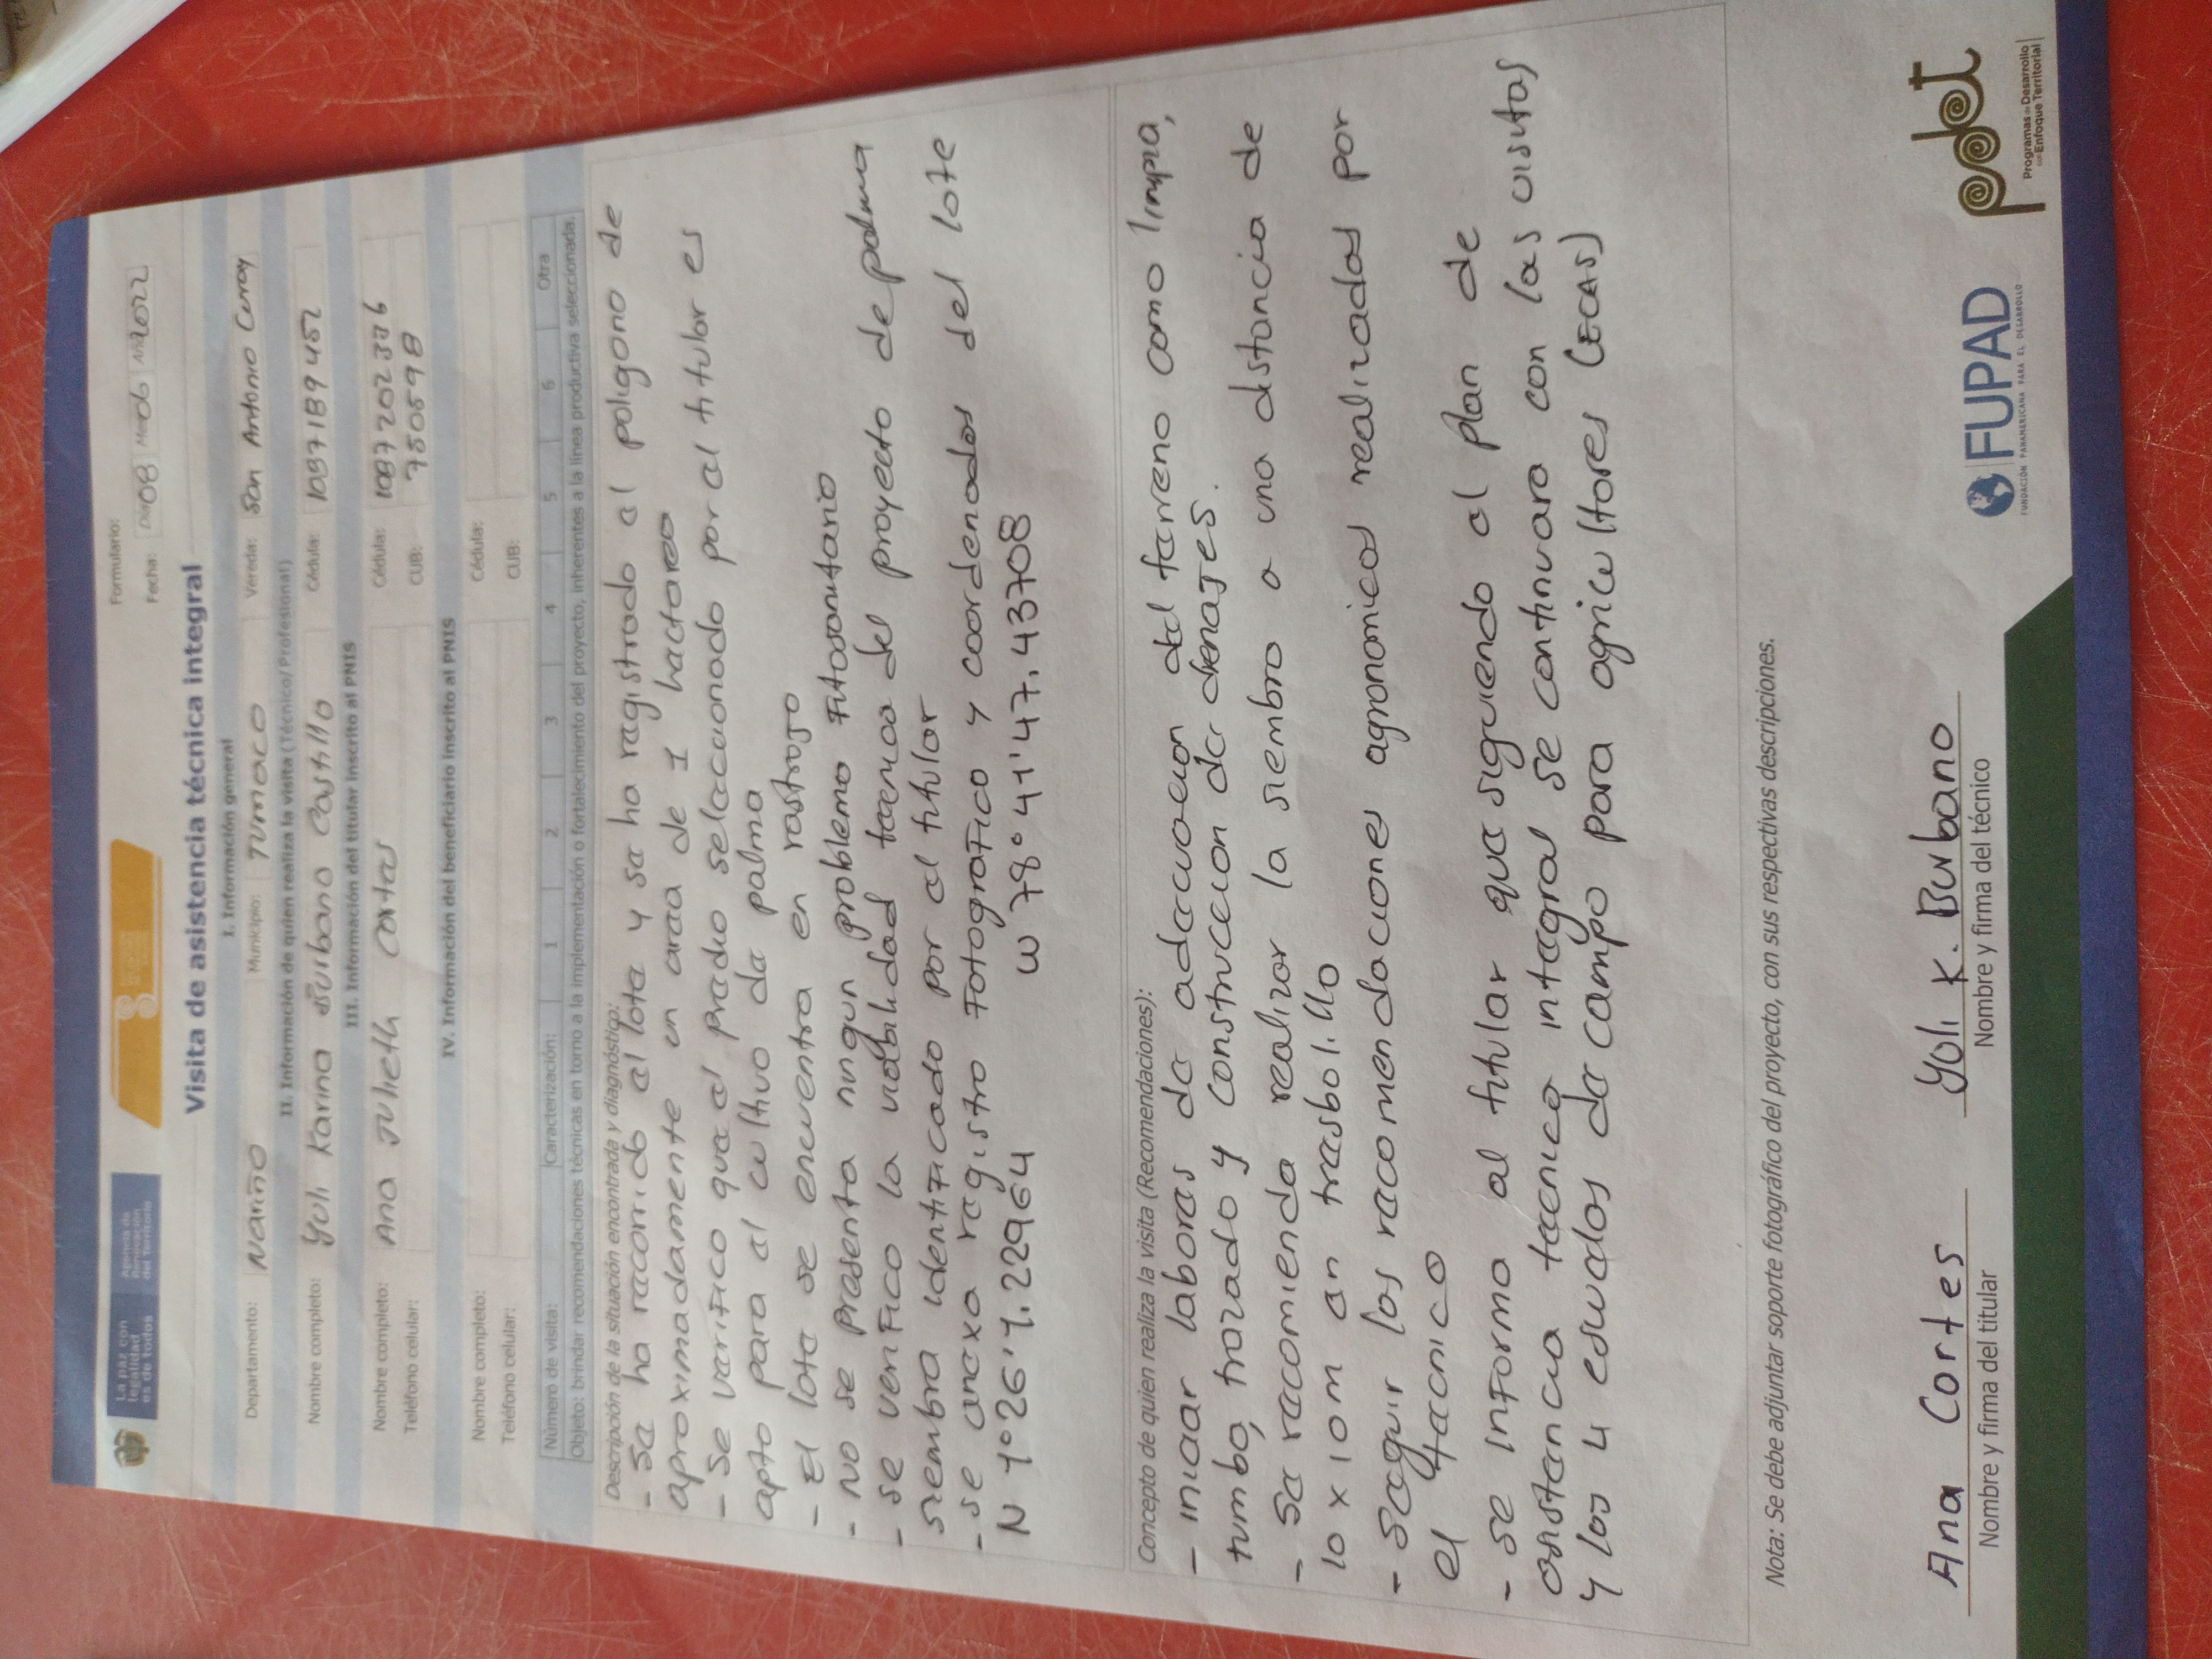 La paz con
legalidad
es de todos
Agencia de
Renovación
del Territorio
Formulario:
Fecha: Día 08 Mes 06 Año 2022
Visita de asistencia técnica integral
I. Información general
Departamento: Nariño Municipio: Tumaco Vereda: San Antonio Curay
II. Información de quien realiza la visita (Técnico/Profesional)
Nombre completo: Yuli Karina Burbano Castillo Cédula: 1087189452
III. Información del titular inscrito al PNIS
Nombre completo: Ana Julieth Cortes Cédula: 1087202386
Teléfono celular: CUB: 750598
IV. Información del beneficiario inscrito al PNIS
Nombre completo: Cédula:
Teléfono celular: CUB:
Número de visita: Caracterización: 1 2 3 4 5 6 Otra
Objeto: brindar recomendaciones técnicas en torno a la implementación o fortalecimiento del proyecto, inherentes a la línea productiva seleccionada.
Descripción de la situación encontrada y diagnóstico:
- Se ha recorrido el lote y se ha registrado el poligono de
aproximadamente un area de 1 hectarea
- Se verifico que el predio seleccionado por el titular es
apto para el cultivo de palma
- El lote se encuentra en rastrojo
- No se presenta ningun problema fitosanitario
- se verifico la viabilidad tecnica del proyecto de palma
siembra identificado por el titular
- se anexa registro fotografico y coordenadas del lote
N 1°26'1.22964 W 78°41'47.43708
Concepto de quien realiza la visita (Recomendaciones):
- iniciar labores de adecuacion del terreno como limpia,
tumba, trazado y construccion de drenajes.
- Se recomienda realizar la siembra a una distancia de
10 x 10 m en tresbolillo
- Seguir las recomendaciones agronomicas realizadas por
el tecnico
- se informa al titular que siguiendo el plan de
asistencia tecnica integral se continuara con las visitas
y las 4 escuelas de campo para agricultores (ECAS)
Nota: Se debe adjuntar soporte fotográfico del proyecto, con sus respectivas descripciones.
Ana Cortes Yuli K. Burbano
Nombre y firma del titular Nombre y firma del técnico
FUPAD
FUNDACIÓN PANAMERICANA PARA EL DESARROLLO
pdet
Programas de Desarrollo
con Enfoque Territorial